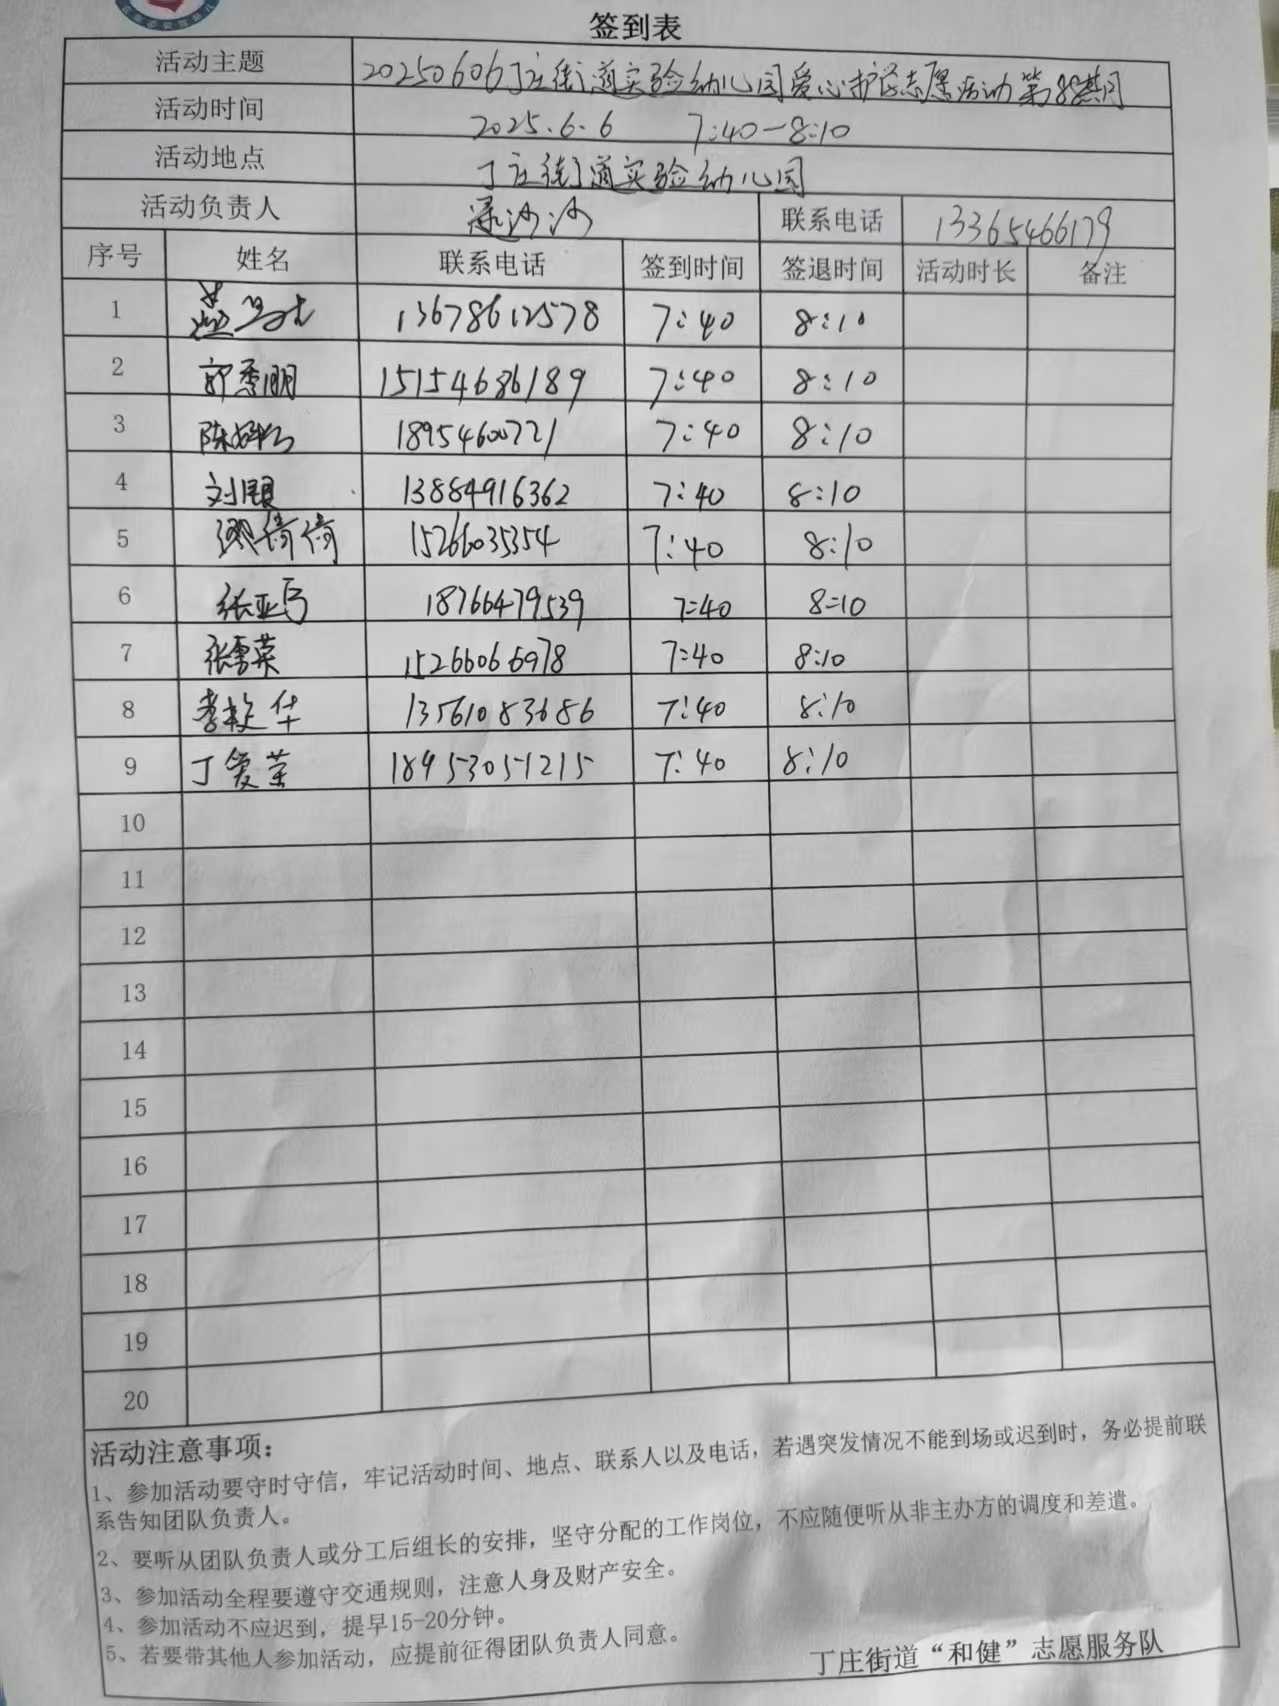 签到表
活动主题 20250606丁庄街道实验幼儿园爱心护学志愿活动第88期
活动时间 2025.6.6 7:40-8:10
活动地点 丁庄街道实验幼儿园
活动负责人 梁沙沙 联系电话 13365466179
序号 姓名 联系电话 签到时间 签退时间 活动时长 备注
1 13678612578 7:40 8:10
2 郭秀明 15154686189 7:40 8:10
3 陈 18954600721 7:40 8:10
4 刘 13884916362 7:40 8:10
5 倩倩 15266035354 7:40 8:10
6 张亚 18766479539 7:40 8:10
7 张雪英 15266066978 7:40 8:10
8 李 华 13561083686 7:40 8:10
9 丁爱荣 18953051215 7:40 8:10
10
11
12
13
14
15
16
17
18
19
20
活动注意事项：
1、参加活动要守时守信，牢记活动时间、地点、联系人以及电话，若遇突发情况不能到场或迟到时，务必提前联
系告知团队负责人。
2、要听从团队负责人或分工后组长的安排，坚守分配的工作岗位，不应随便听从非主办方的调度和差遣。
3、参加活动全程要遵守交通规则，注意人身及财产安全。
4、参加活动不应迟到，提早15-20分钟。
5、若要带其他人参加活动，应提前征得团队负责人同意。
丁庄街道“和健”志愿服务队